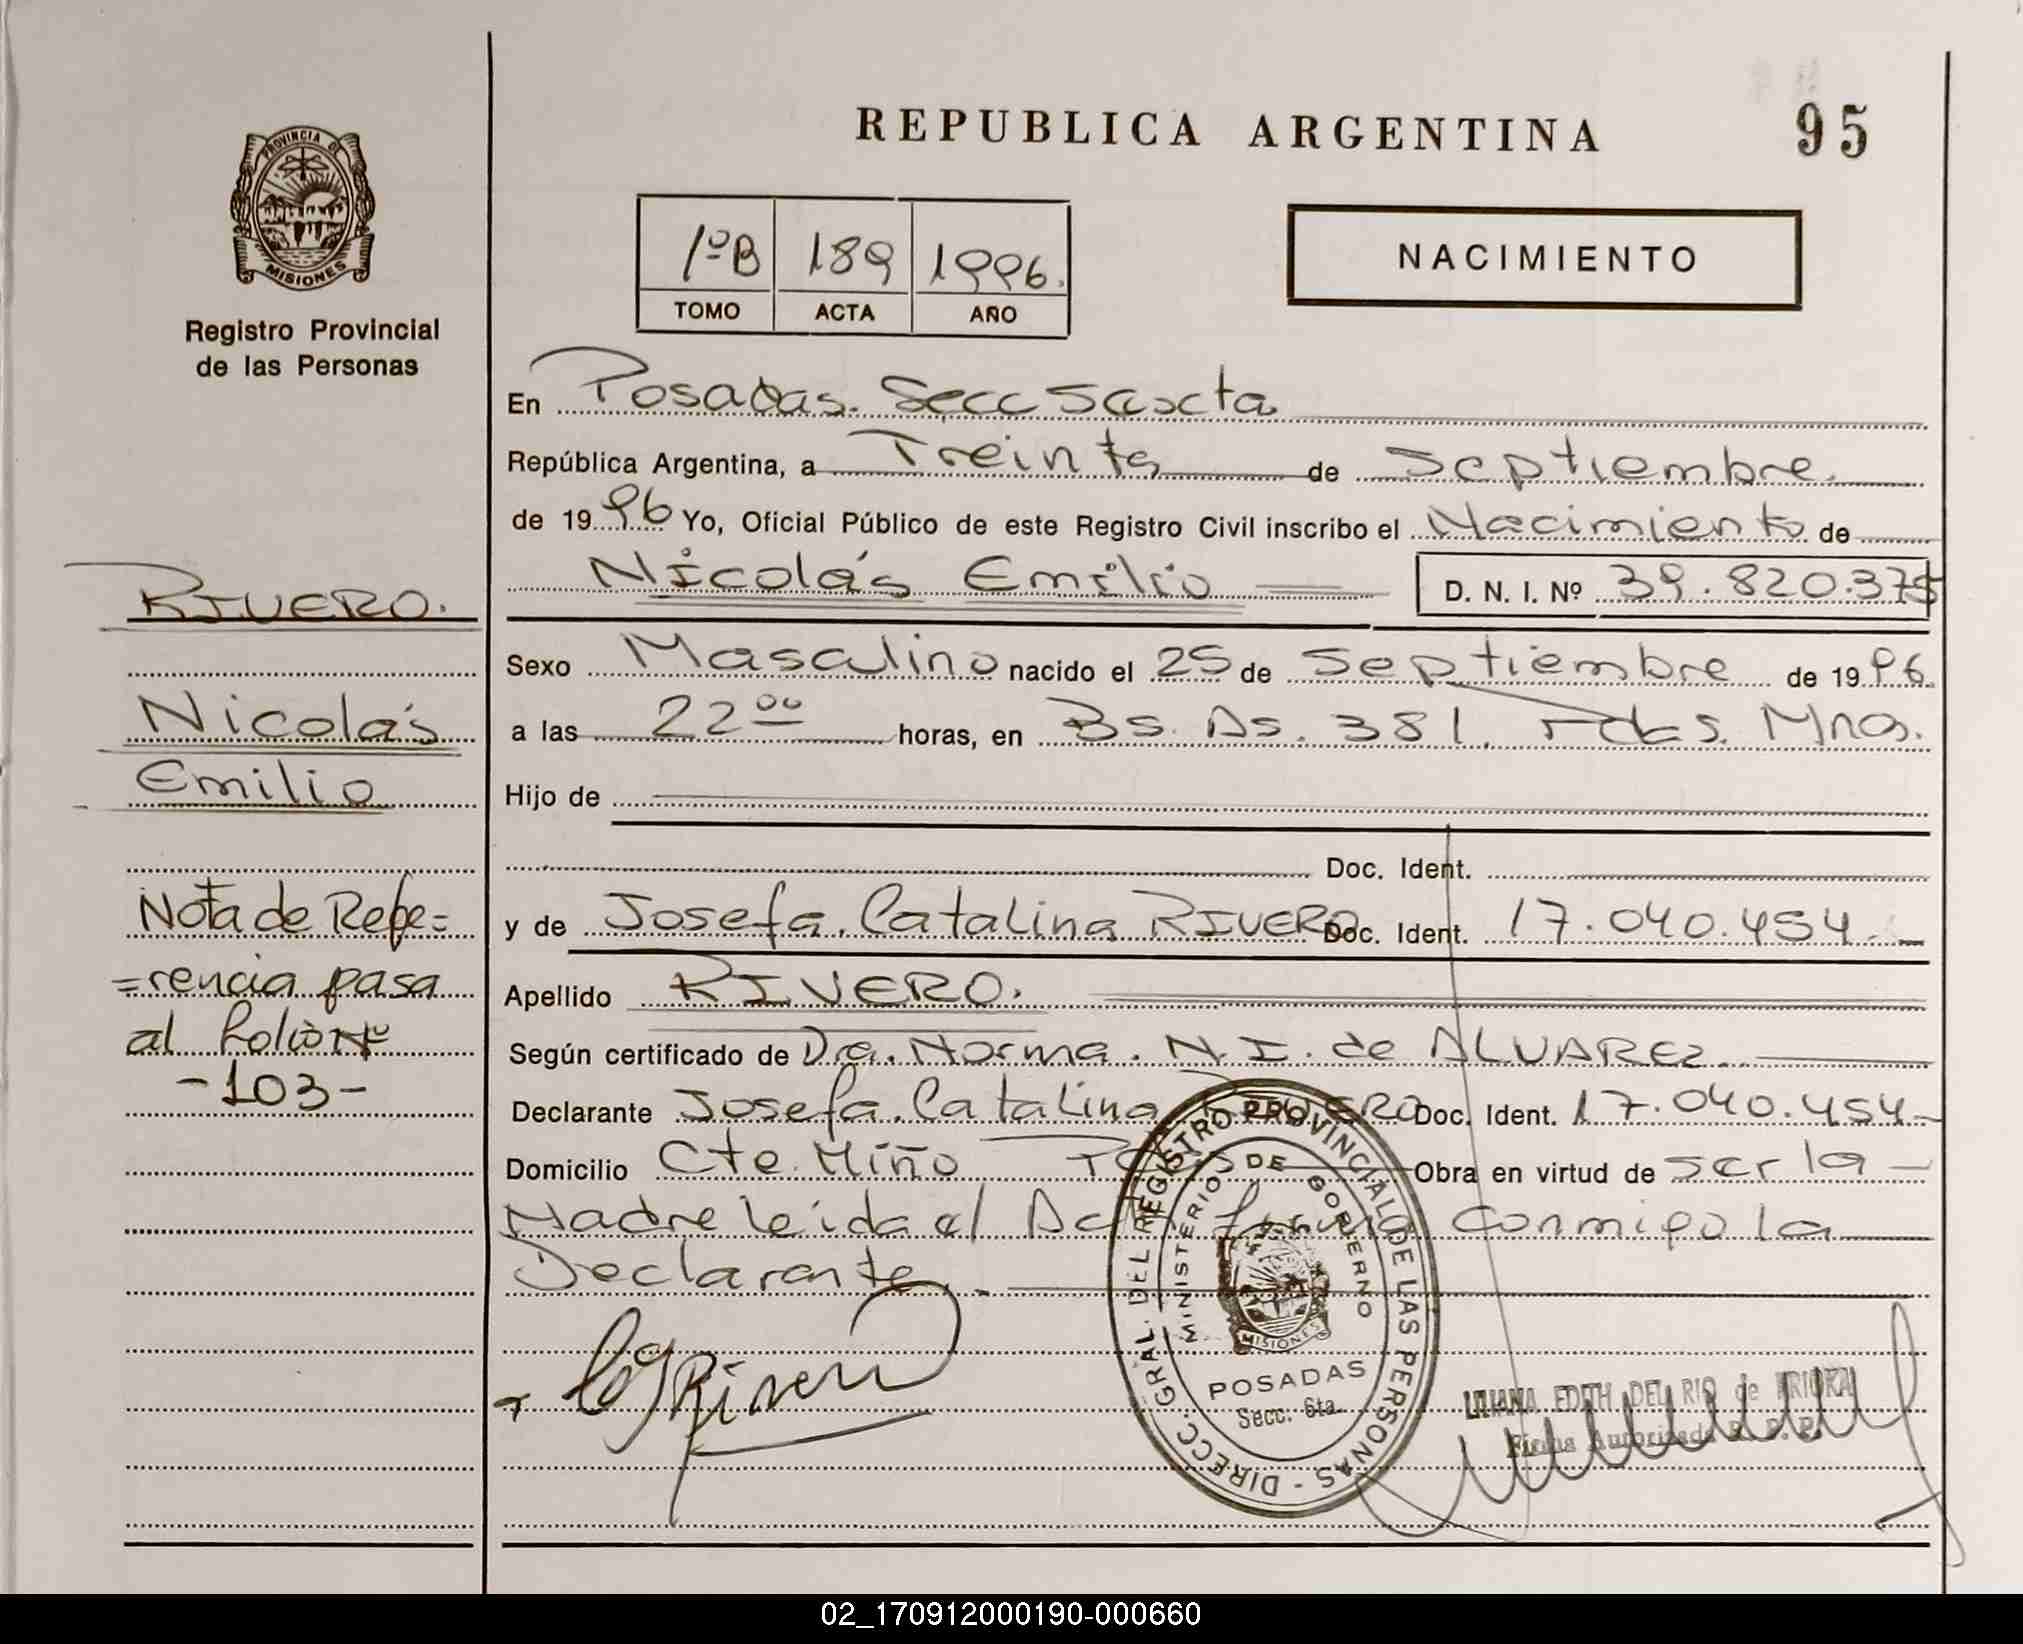 REPUBLICA ARGENTINA
95
PROVINCIA DE
MISIONES
Registro Provincial
de las Personas
1ºB 189 1996.
TOMO ACTA AÑO
NACIMIENTO
En Posadas. Secc Sexta
República Argentina, a Treinta de Septiembre.
de 1996 Yo, Oficial Público de este Registro Civil inscribo el Nacimiento de
Nicolás Emilio D. N. I. Nº 39.820.375
Sexo Masculino nacido el 25 de Septiembre de 1996.
a las 22 00 horas, en Bs. As. 381. Pdas. Mnes.
Hijo de
Doc. Ident.
y de Josefa. Catalina RIVERO Doc. Ident. 17.040.454.-
Apellido RIVERO.
Según certificado de Dra. Norma. N. I. de ALVAREZ
Declarante Josefa. Catalina RIVERO Doc. Ident. 17.040.454-
Domicilio Cte. Miño Obra en virtud de ser la -
Madre leida el conmigo la
Declarante. -
RIVERO.
Nicolás
Emilio
Nota de Refe=
=rencia pasa
al Folio Nº
-103-
DIRECC. GRAL. DEL REGISTRO PROVINCIAL DE LAS PERSONAS -
MINISTERIO DE GOBIERNO
MISIONES
POSADAS
Secc. 6ta.
LILIANA EDITH DEL RIO de
Firma Autorizada R. P. P.
02_170912000190-000660